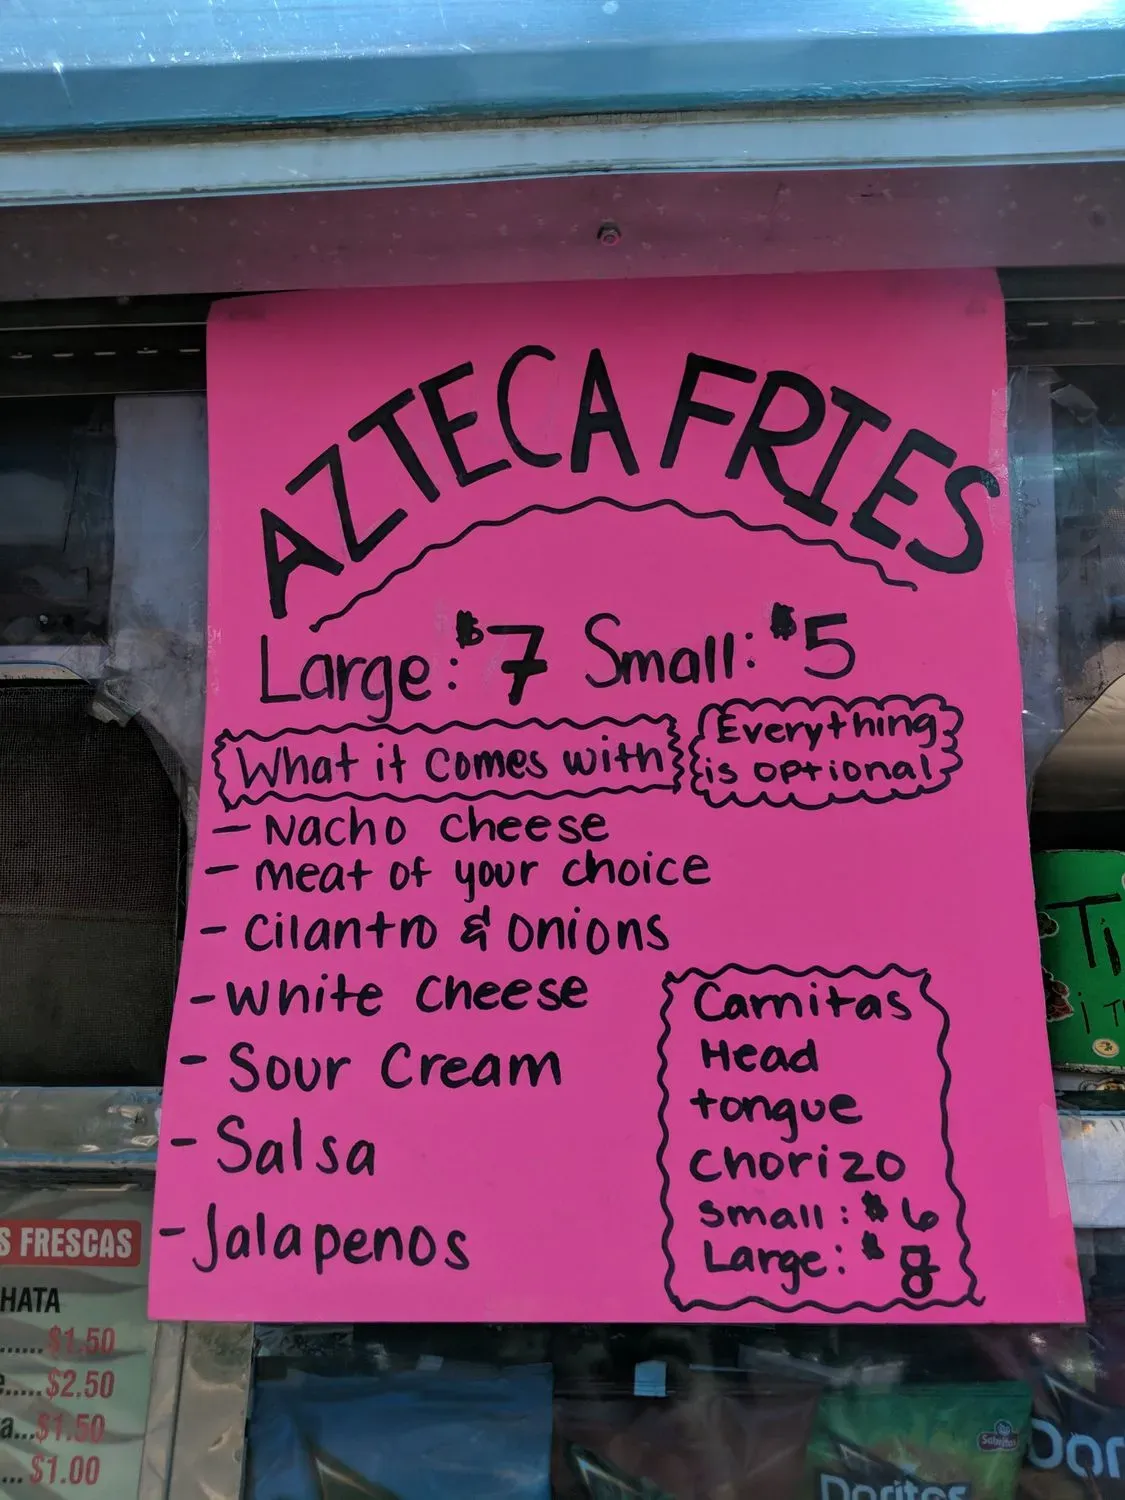 AZTECA FRIES
Large: $7 Small: $5
What it comes with
Everything
is optional
- Nacho cheese
- meat of your choice
- cilantro & onions
- white cheese
- Sour Cream
- Salsa
- Jalapenos
Carnitas
Head
tongue
chorizo
small: $6
Large: $8
S FRESCAS
HATA
......$1.50
.....$2.50
a...$1.50
...$1.00
Sabritas
Doritos
Dor